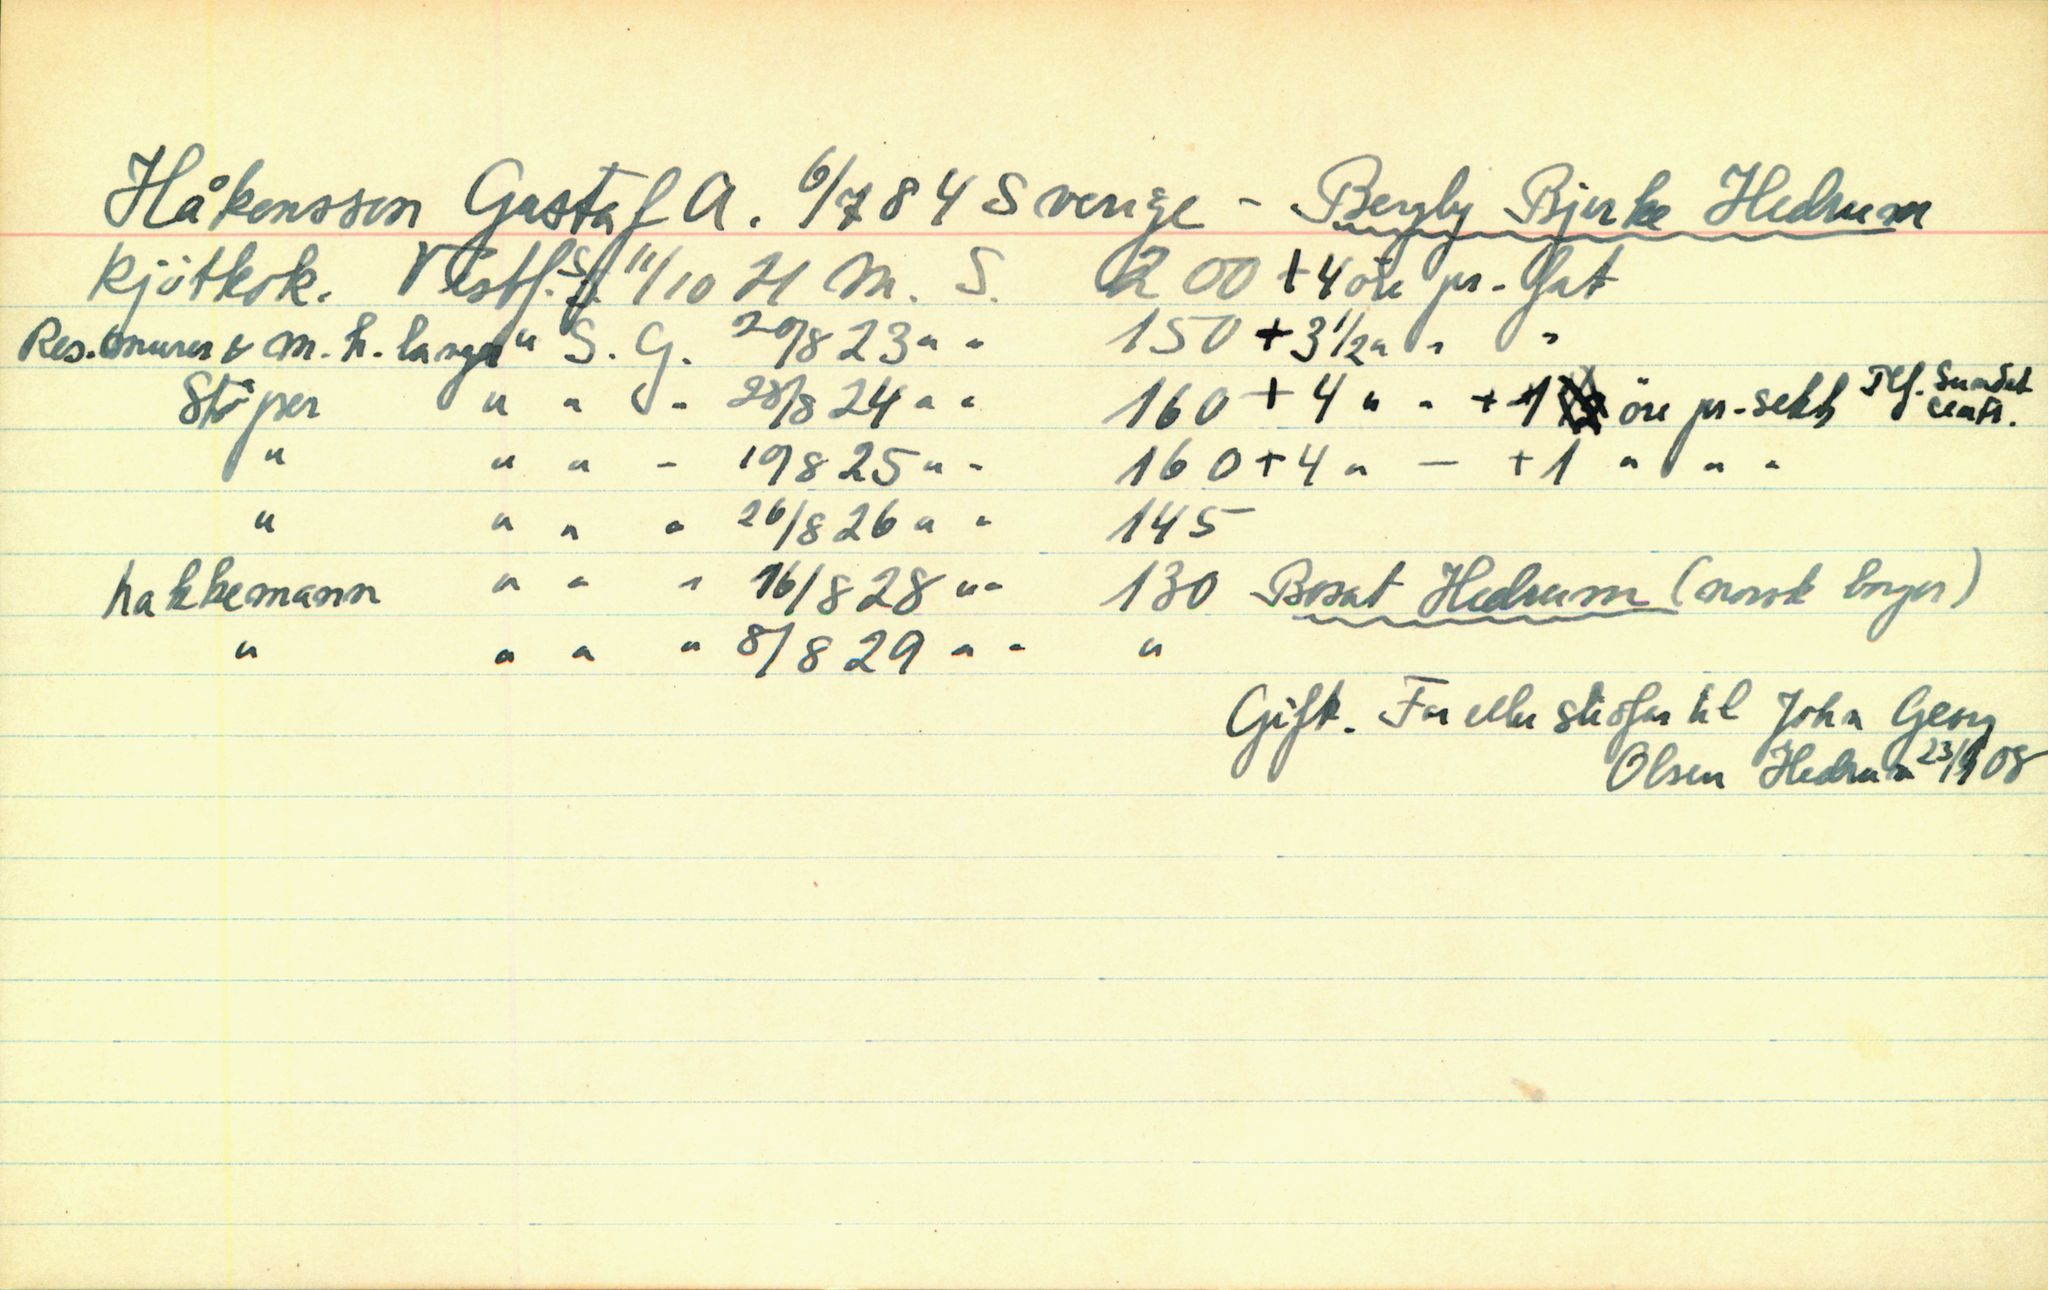 Håkonsson Gustaf A. 6/7 84 Sverige - Bergby Bjerke Hedrum
Kjötkok. Vestf. S. 11/10 21 M. S. 200 + 4 öre pr. fat
Res. & m. h. lange " S. G. 20/8 23 " " 150 + 3 1/2 " " "
Støper " " " 28/8 24 " " 160 + 4 " " + 1 öre pr. sekk Tlf. Sundet centr.
" " " - 19/8 25 " " 160 + 4 " - + 1 " " "
" " " " 26/8 26 " " 145
hakkemann " " " 16/8 28 " " 130 Bosat Hedrum (norsk borger)
" " " " 8/8 29 " " "
Gift. Far eller stefar til John Georg
Olsen Hedrum 08